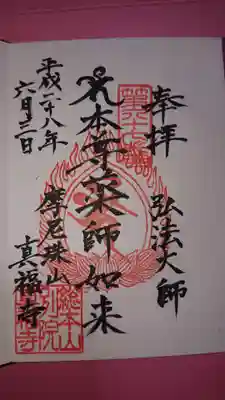 奉拝
弘法大師
本尊薬師如来
摩尼珠山
真福寺
平成二十八年
六月三日
総本山